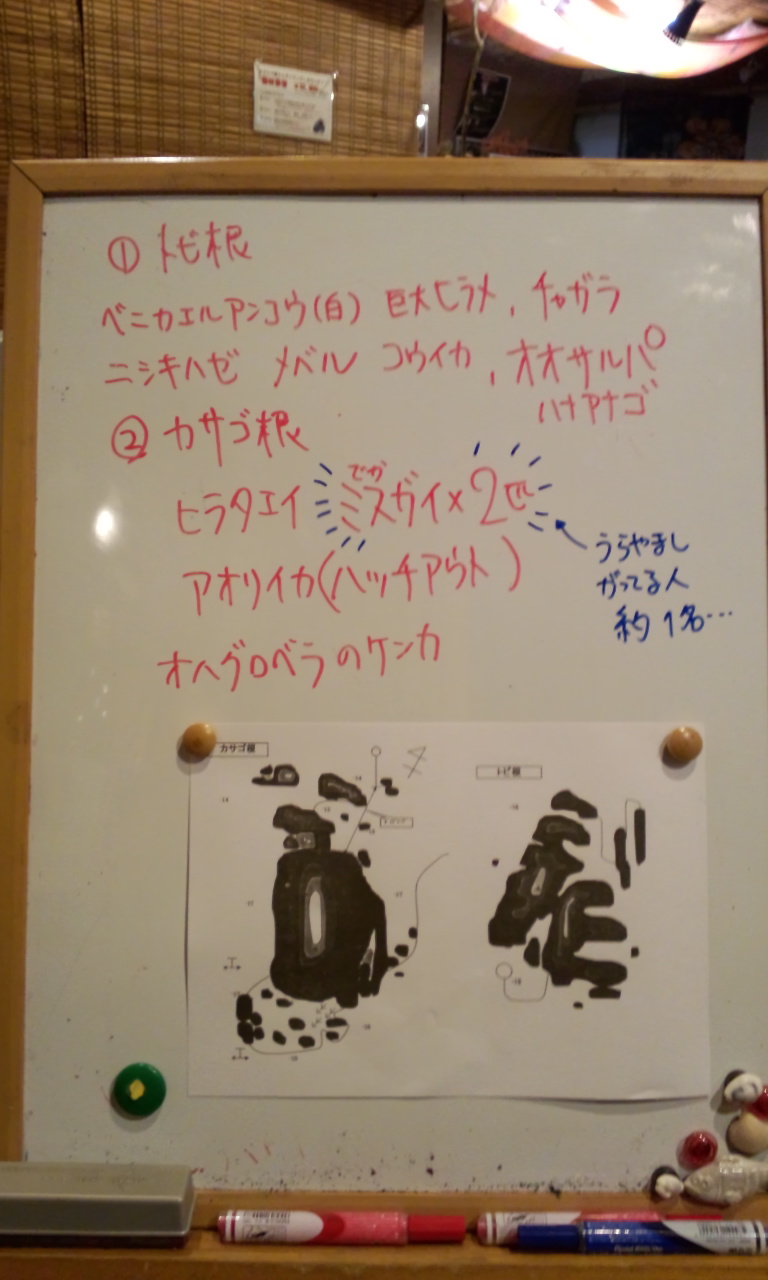 ① トビ根
ベニカエルアンコウ(白) 巨大ヒラメ, チャガラ
ニシキハゼ メバル コウイカ, オオサルパ
ハナアナゴ
② カサゴ根
でか
ヒラタエイ スガイ×2匹
うらやまし
がってる人
約1名…
アオリイカ(ハッチアウト)
オハグロベラのケンカ
カサゴ根
トビ根